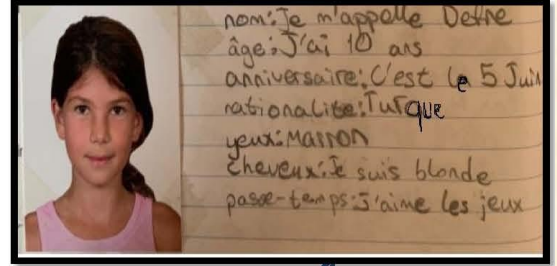 nom: Je m'appelle Defne
âge: J'ai 10 ans
anniversaire: C'est le 5 Juin
nationalite: Turque
yeux: Marron
cheveux: Je suis blonde
passe-temps: J'aime les jeux